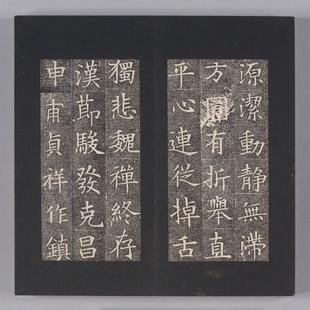 源潔動静無滯
方圓有折舉直
平心連從掉舌
獨悲魏禪終存
漢節駿發克昌
申甫貞祥作鎮